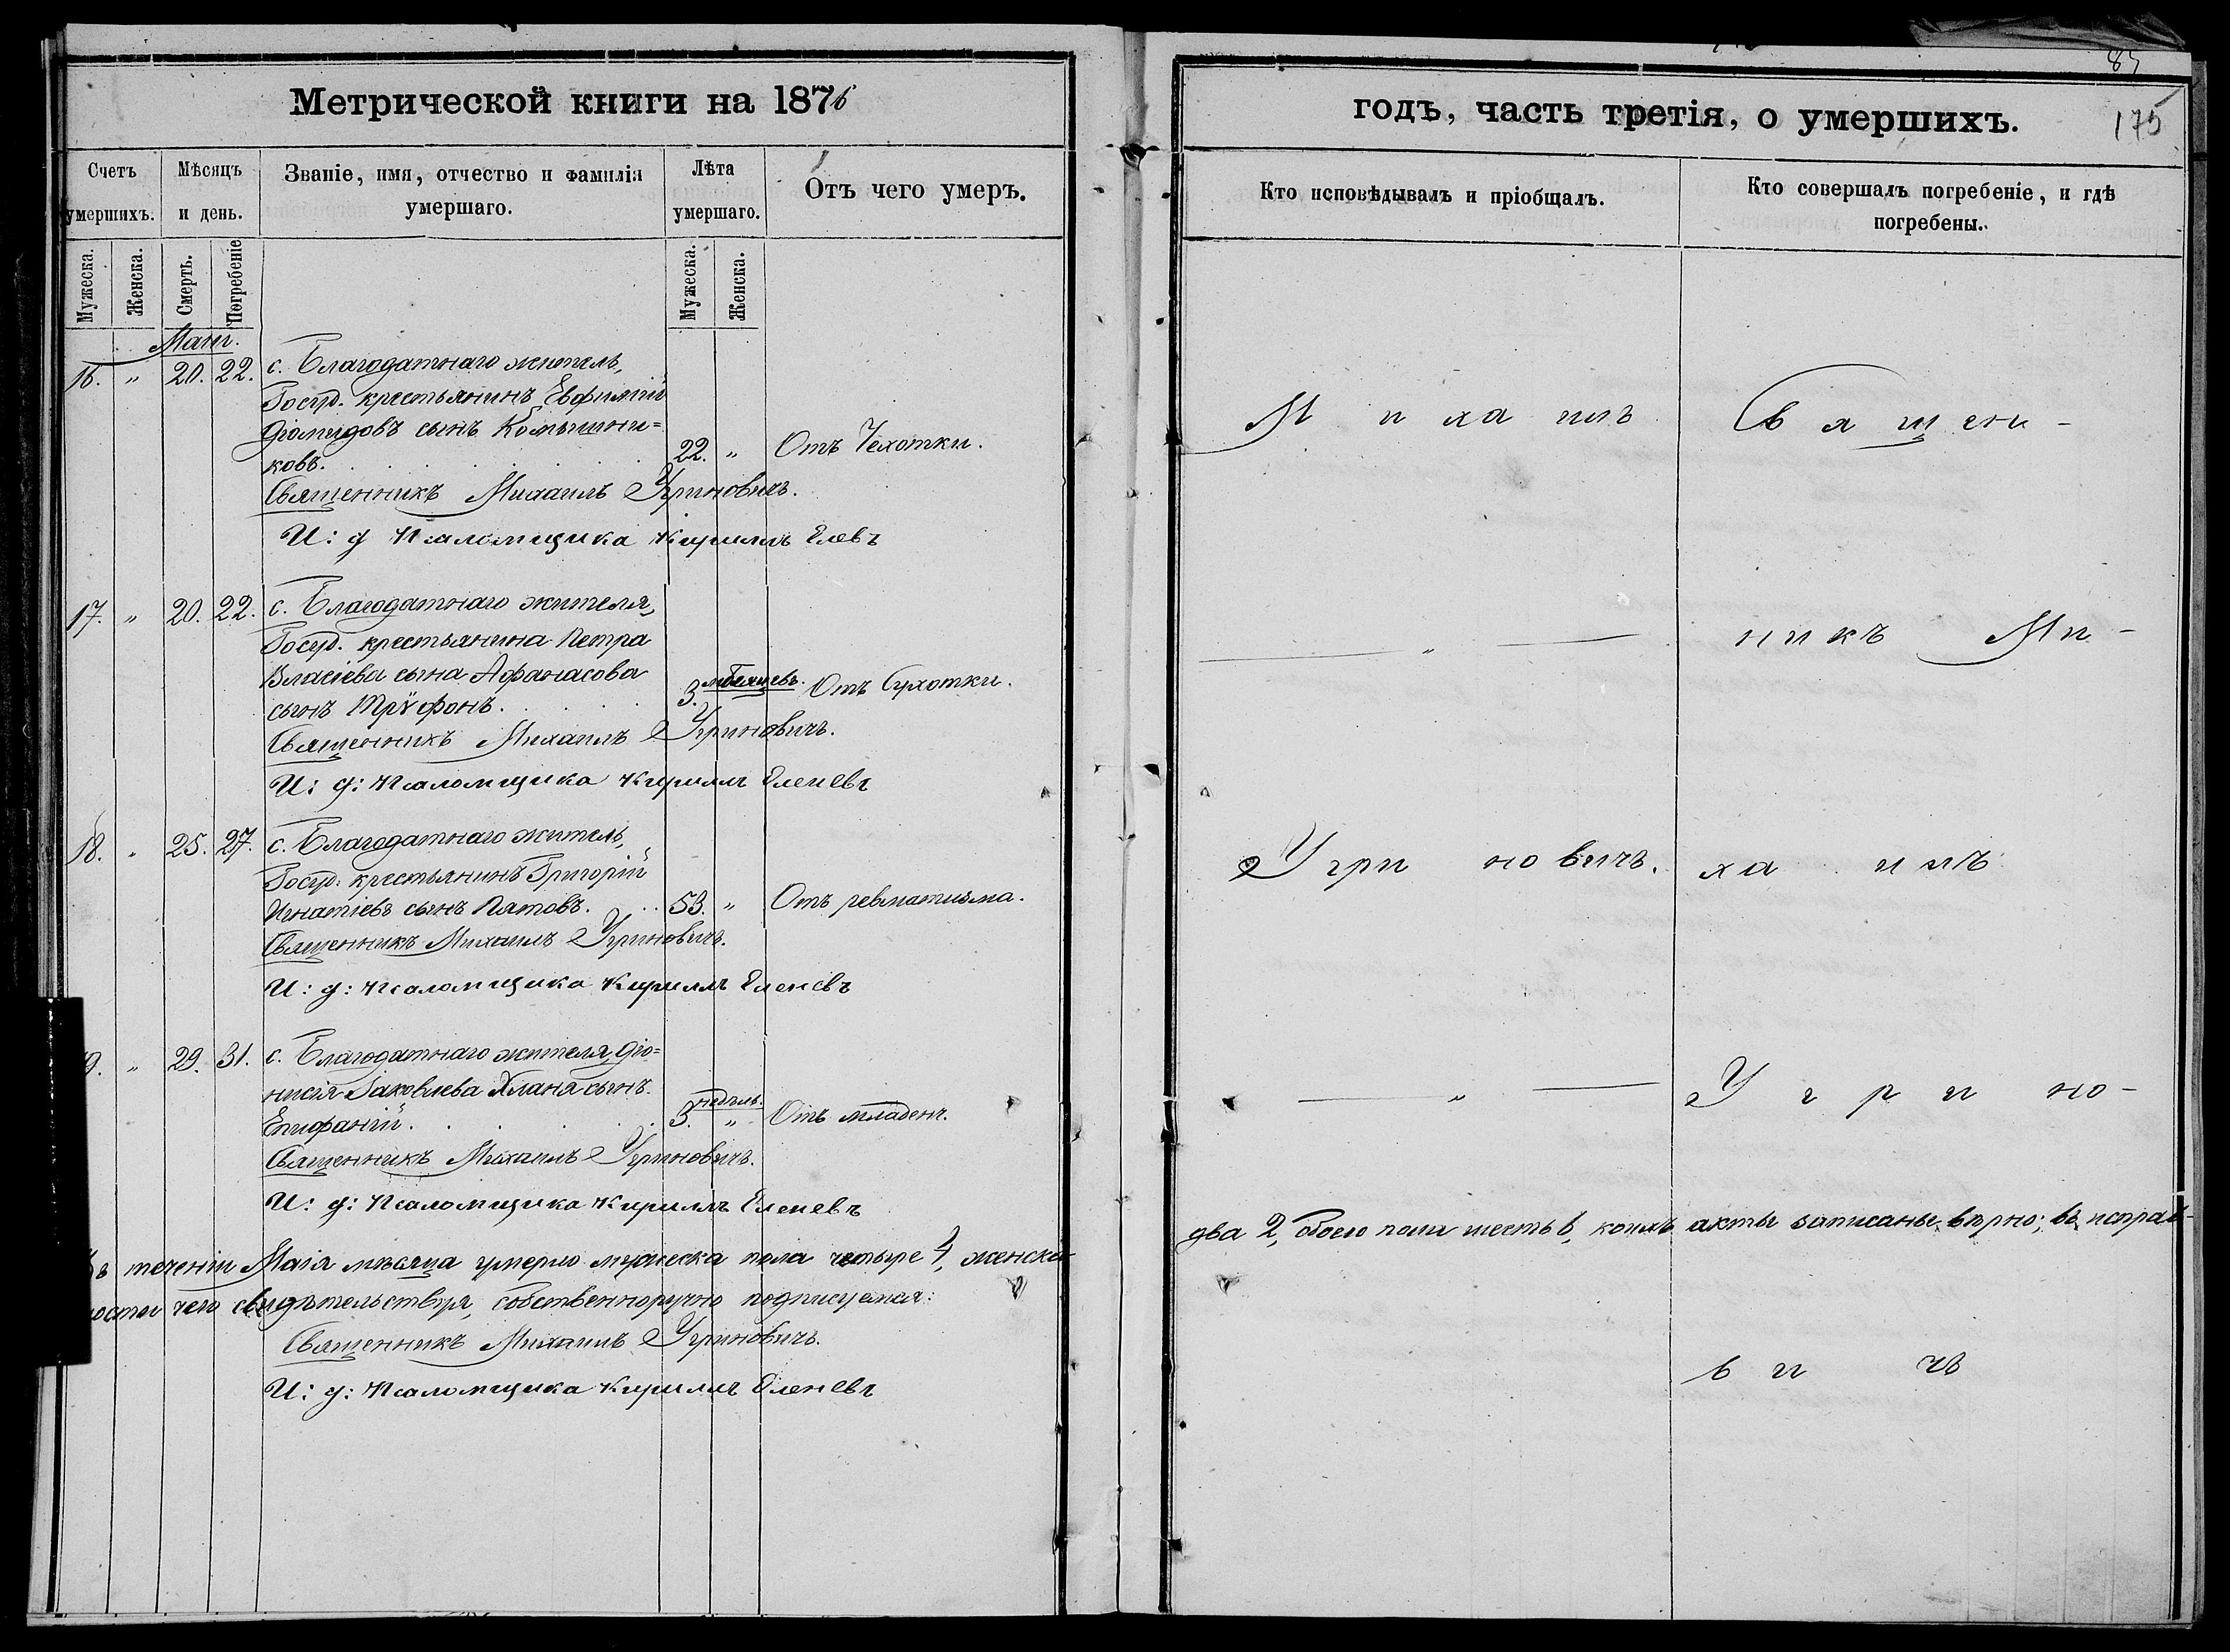 Метрической книги на 1876
Счетъ умершихъ.
Мѣсяцъ и день.
Званіе, имя, отчество и фамилія умершаго.
Лѣта умершаго.
Отъ чего умеръ.
Мужеска.
Женска.
Смерть.
Погребеніе
Мужеска.
Женска.
Маій.
16. " 20. 22. с. Благодатнаго житель,
Госуд. крестьянинъ Евфимій
Діомидовъ сынъ
ковъ. 22. " Отъ Чехотки.
Священникъ Михаилъ Угриновичъ.
И: д Псаломщика Кириллъ
17. " 20. 22. с. Благодатнаго жителя,
Госуд. крестьянина Петра
Власіева сына Афанасова
сынъ Трѵфонъ. 3. мѣсяцевъ. Отъ Сухотки.
Священникъ Михаилъ Угриновичъ.
И: д: Псаломщика Кириллъ Еленевъ
18. " 25. 27. с. Благодатнаго житель,
Госуд. крестьянинъ Григорій
Игнатіевъ сынъ Пятовъ. 53. " Отъ ревматизма.
Священникъ Михаилъ Угриновичъ.
И: д: Псаломщика Кириллъ Еленевъ
9. " 29. 31. с. Благодатнаго жителя Діо=
нисія Іаковлева сынъ
Епифаній. 3. недѣль. " Отъ младенч.
Священникъ Михаилъ Угриновичъ.
И: д: Псаломщика Кириллъ Еленевъ
въ теченіи Маія мѣсяца умерло мужеска пола четыре 4, женска
ности чего свидѣтельствуя, собственноручно подписуемся:
Священникъ Михаилъ Угриновичъ.
И: д: Псаломщика Кириллъ Еленевъ
85
годъ, часть третія, о умершихъ. 175
Кто исповѣдывалъ и пріобщалъ.
Кто совершалъ погребеніе, и гдѣ погребены.
Михаилъ
Священ-
" никъ Ми-
Угриновичъ. хаилъ
" Угрино-
два 2, обоего пола шесть 6, коихъ акты записаны вѣрно; въ исправ-
вичъ